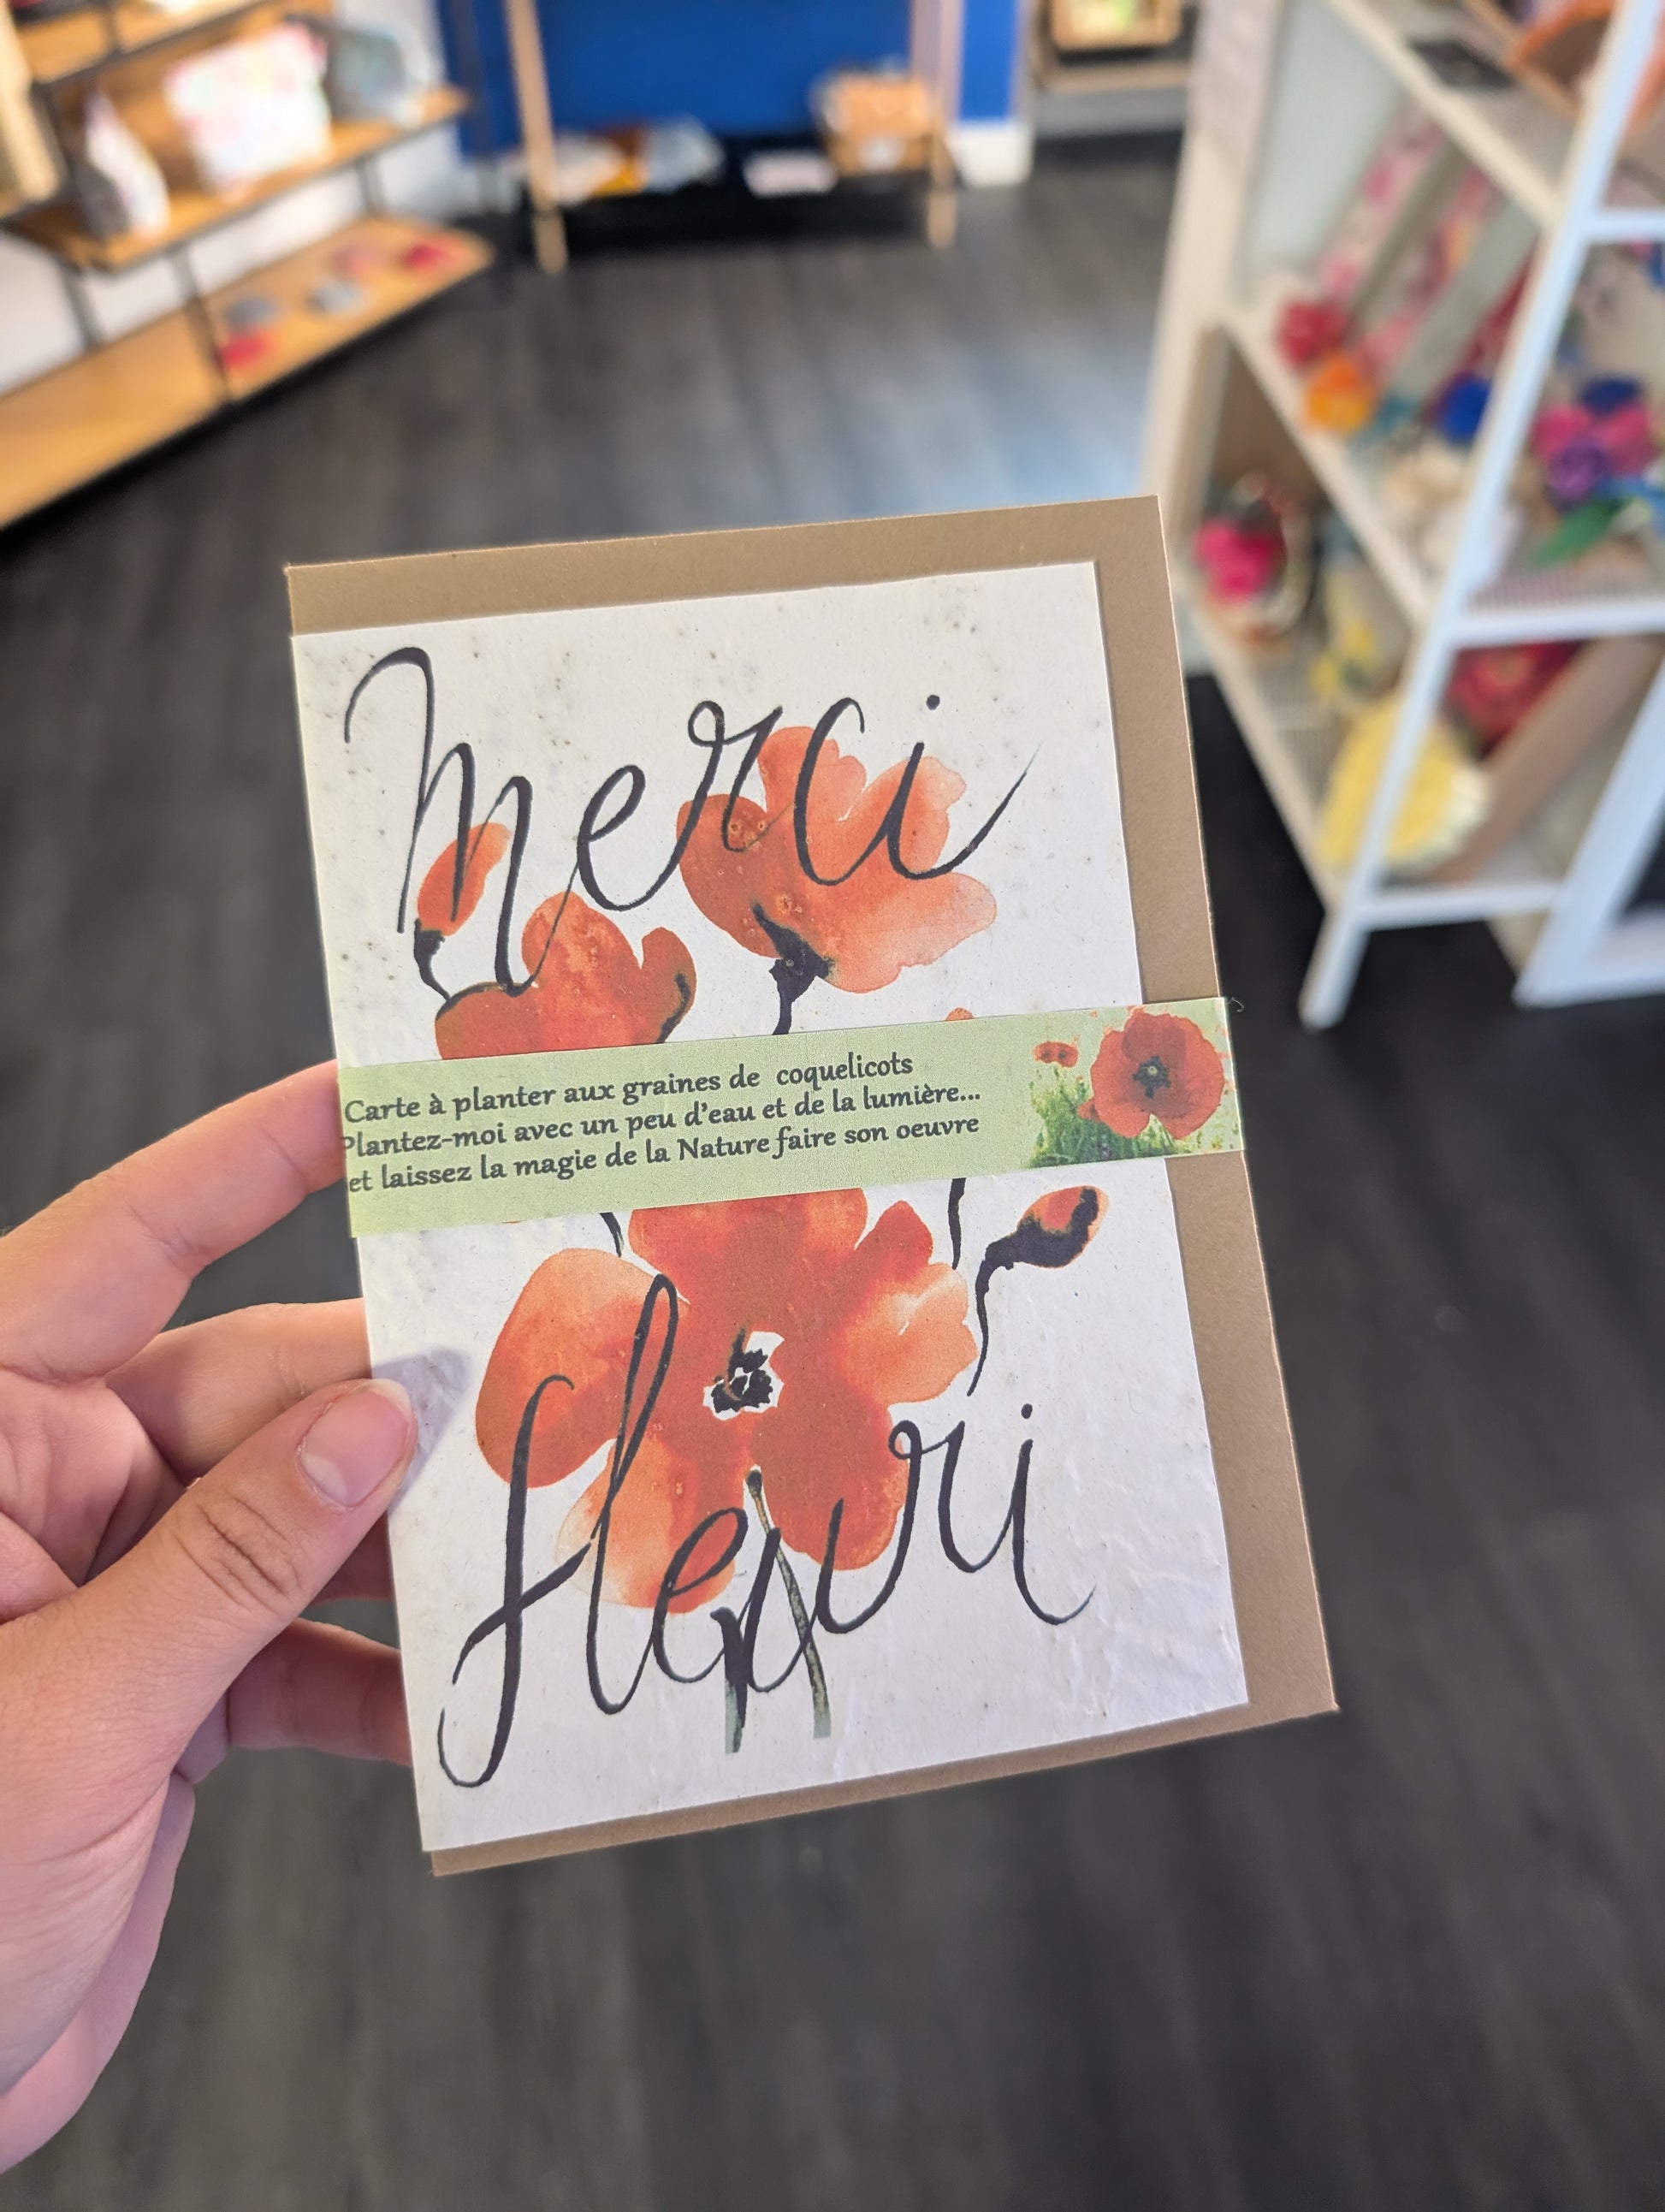 Merci
Carte à planter aux graines de coquelicots
Plantez-moi avec un peu d'eau et de la lumière...
et laissez la magie de la Nature faire son oeuvre
fleuri